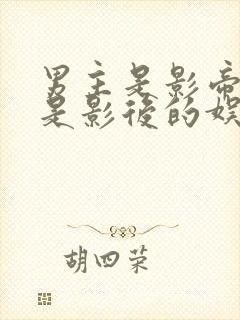 男主是影帝
是影后的娱
胡四荣